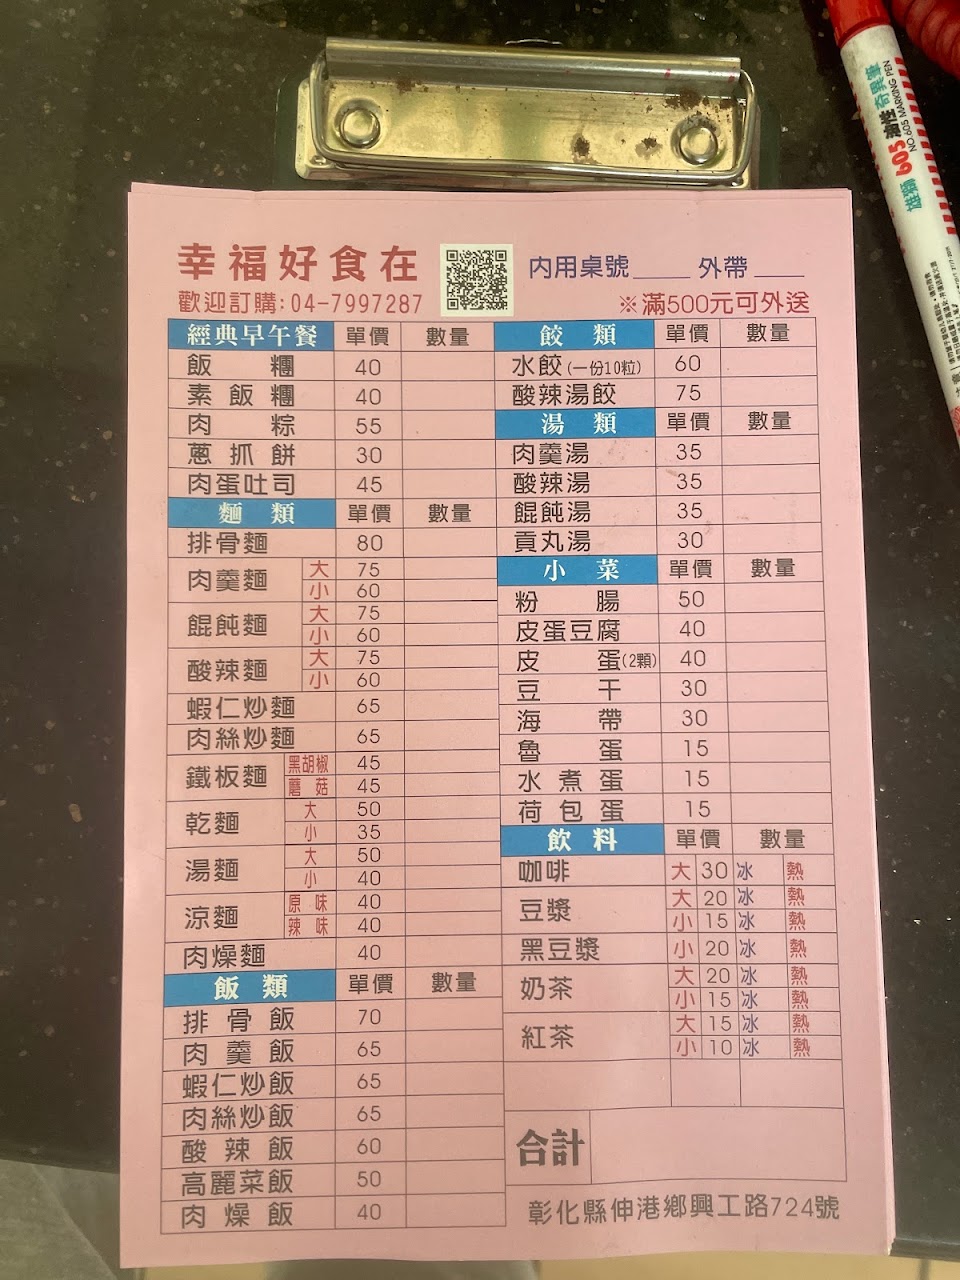 雄獅 605 油性 奇異筆
NO.605 MARKING PEN
幸福好食在
歡迎訂購:04-7997287
內用桌號____ 外帶____
※滿500元可外送
經典早午餐 單價 數量
飯糰 40
素飯糰 40
肉粽 55
蔥抓餅 30
肉蛋吐司 45
麵類 單價 數量
排骨麵 80
肉羹麵 大 75
小 60
餛飩麵 大 75
小 60
酸辣麵 大 75
小 60
蝦仁炒麵 65
肉絲炒麵 65
鐵板麵 黑胡椒 45
蘑菇 45
乾麵 大 50
小 35
湯麵 大 50
小 40
涼麵 原味 40
辣味 40
肉燥麵 40
飯類 單價 數量
排骨飯 70
肉羹飯 65
蝦仁炒飯 65
肉絲炒飯 65
酸辣飯 60
高麗菜飯 50
肉燥飯 40
餃類 單價 數量
水餃(一份10粒) 60
酸辣湯餃 75
湯類 單價 數量
肉羹湯 35
酸辣湯 35
餛飩湯 35
貢丸湯 30
小菜 單價 數量
粉腸 50
皮蛋豆腐 40
皮蛋(2顆) 40
豆干 30
海帶 30
魯蛋 15
水煮蛋 15
荷包蛋 15
飲料 單價 數量
咖啡 大 30 冰 熱
豆漿 大 20 冰 熱
小 15 冰 熱
黑豆漿 小 20 冰 熱
奶茶 大 20 冰 熱
小 15 冰 熱
紅茶 大 15 冰 熱
小 10 冰 熱
合計
彰化縣伸港鄉興工路724號